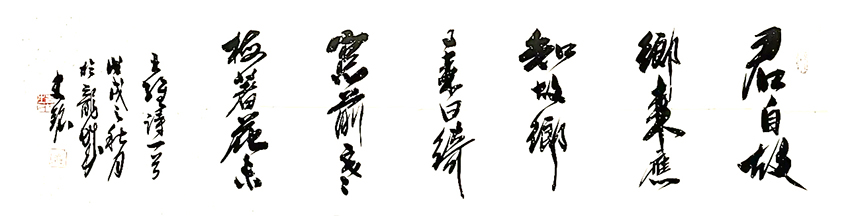 君自故
鄉來應
知故鄉
事來日綺
窓前寒
梅著花未
王維詩一首
戊戌之秋月
於龍城